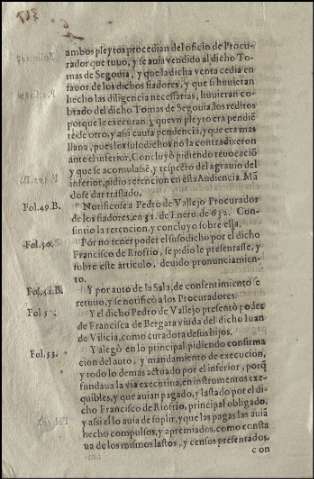 ambos pleytos procedian del oficio de Procu-
rador que tuuo, y se auia vendido al dicho To-
mas de Segouia, y que la dicha venta cedia en
fauor de los dichos fiadores, y que si huuieran
hecho las diligencias necessarias, huuieran co-
brado del dicho Tomas de Segouia los reditos
porque le executan, y que vn pleyto era pendiē
te de otro, y assi causa pendencia, y que era mas
llana, pues los susodichos no la contradixeron
ante el inferior, Concluyò pidiendo reuocaciō
y que se acomulasse, y respecto del agrauio del
inferior, pidio retencion en esta Audiencia. Mā
dose dar traslado.
Fol. 49. B. Notificose a Pedro de Vallejo Procurador
de los fiadores, en 31. de Enero, de 632. Con-
sintio la retencion, y concluyo sobre ella.
Fol. 50. Por no tener poder el susodicho por el dicho
Francisco de Riofrio, se pidio le presentasse, y
sobre este articulo, deuido pronunciamien-
to.
Fol. 52. B. Y por auto de la Sala, de consentimiento se
retuuo, y se notificò a los Procuradores.
Fol 5 Y el dicho Pedro de Vallejo presentò poder
de Francisca de Bergara viuda del dicho Iuan
de Vilicia, como curadora de sus hijos.
Fol. 53. Y alegò en lo principal pidiendo confirma
cion del auto, y mandamiento de execucion,
y todo lo demas actuado por el inferior, porq̄
fundaua la via executiua, en instrumentos exe-
quibles, y que auian pagado, y lastado por el di-
cho Francisco de Riofrio, principal obligado,
y assi el lo auia de suplir, y que las pagas las auiā
hecho compulsos, y apremiados, como consta
ua de los mismos lastos, y censos presentados,
con